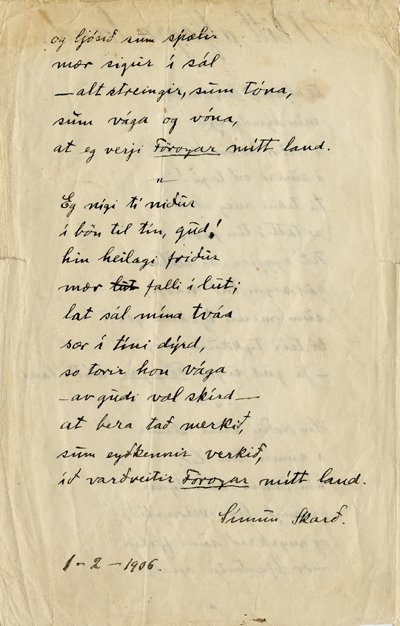 og ljósið sum spælir
mær sigur í sál
— alt streingir, sum tóna,
sum vága og vóna,
at eg verji Föroyar mítt land.
"
Eg nígi tí niður
í bön til tín, gud!
hin heilagi friður
mær lut falli í lut;
lat sál mína tváa
sær í tíni dýrd,
so torir hon vága
— av gudi væl skírd —
at bera tað merkið,
sum eyðkennir verkið,
ið varðveitir Föroyar mítt land.
Símun Skarð.
1-2-1906.